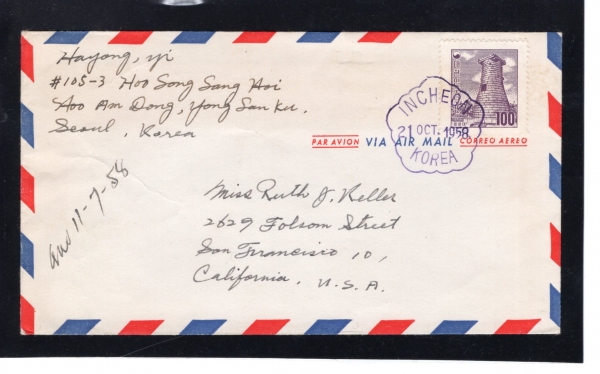 Hayong, yi
#105-3 Hoo Song Sang Hoi
Hoo Am Dong, Yong San Ku.
Seoul, Korea
100
INCHEON
21 OCT. 1958
KOREA
PAR AVION VIA AIR MAIL CORREO AEREO
Miss Ruth J. Keller
2629 Folsom Street
San Francisco 10,
California, U.S.A.
ans 11-7-58